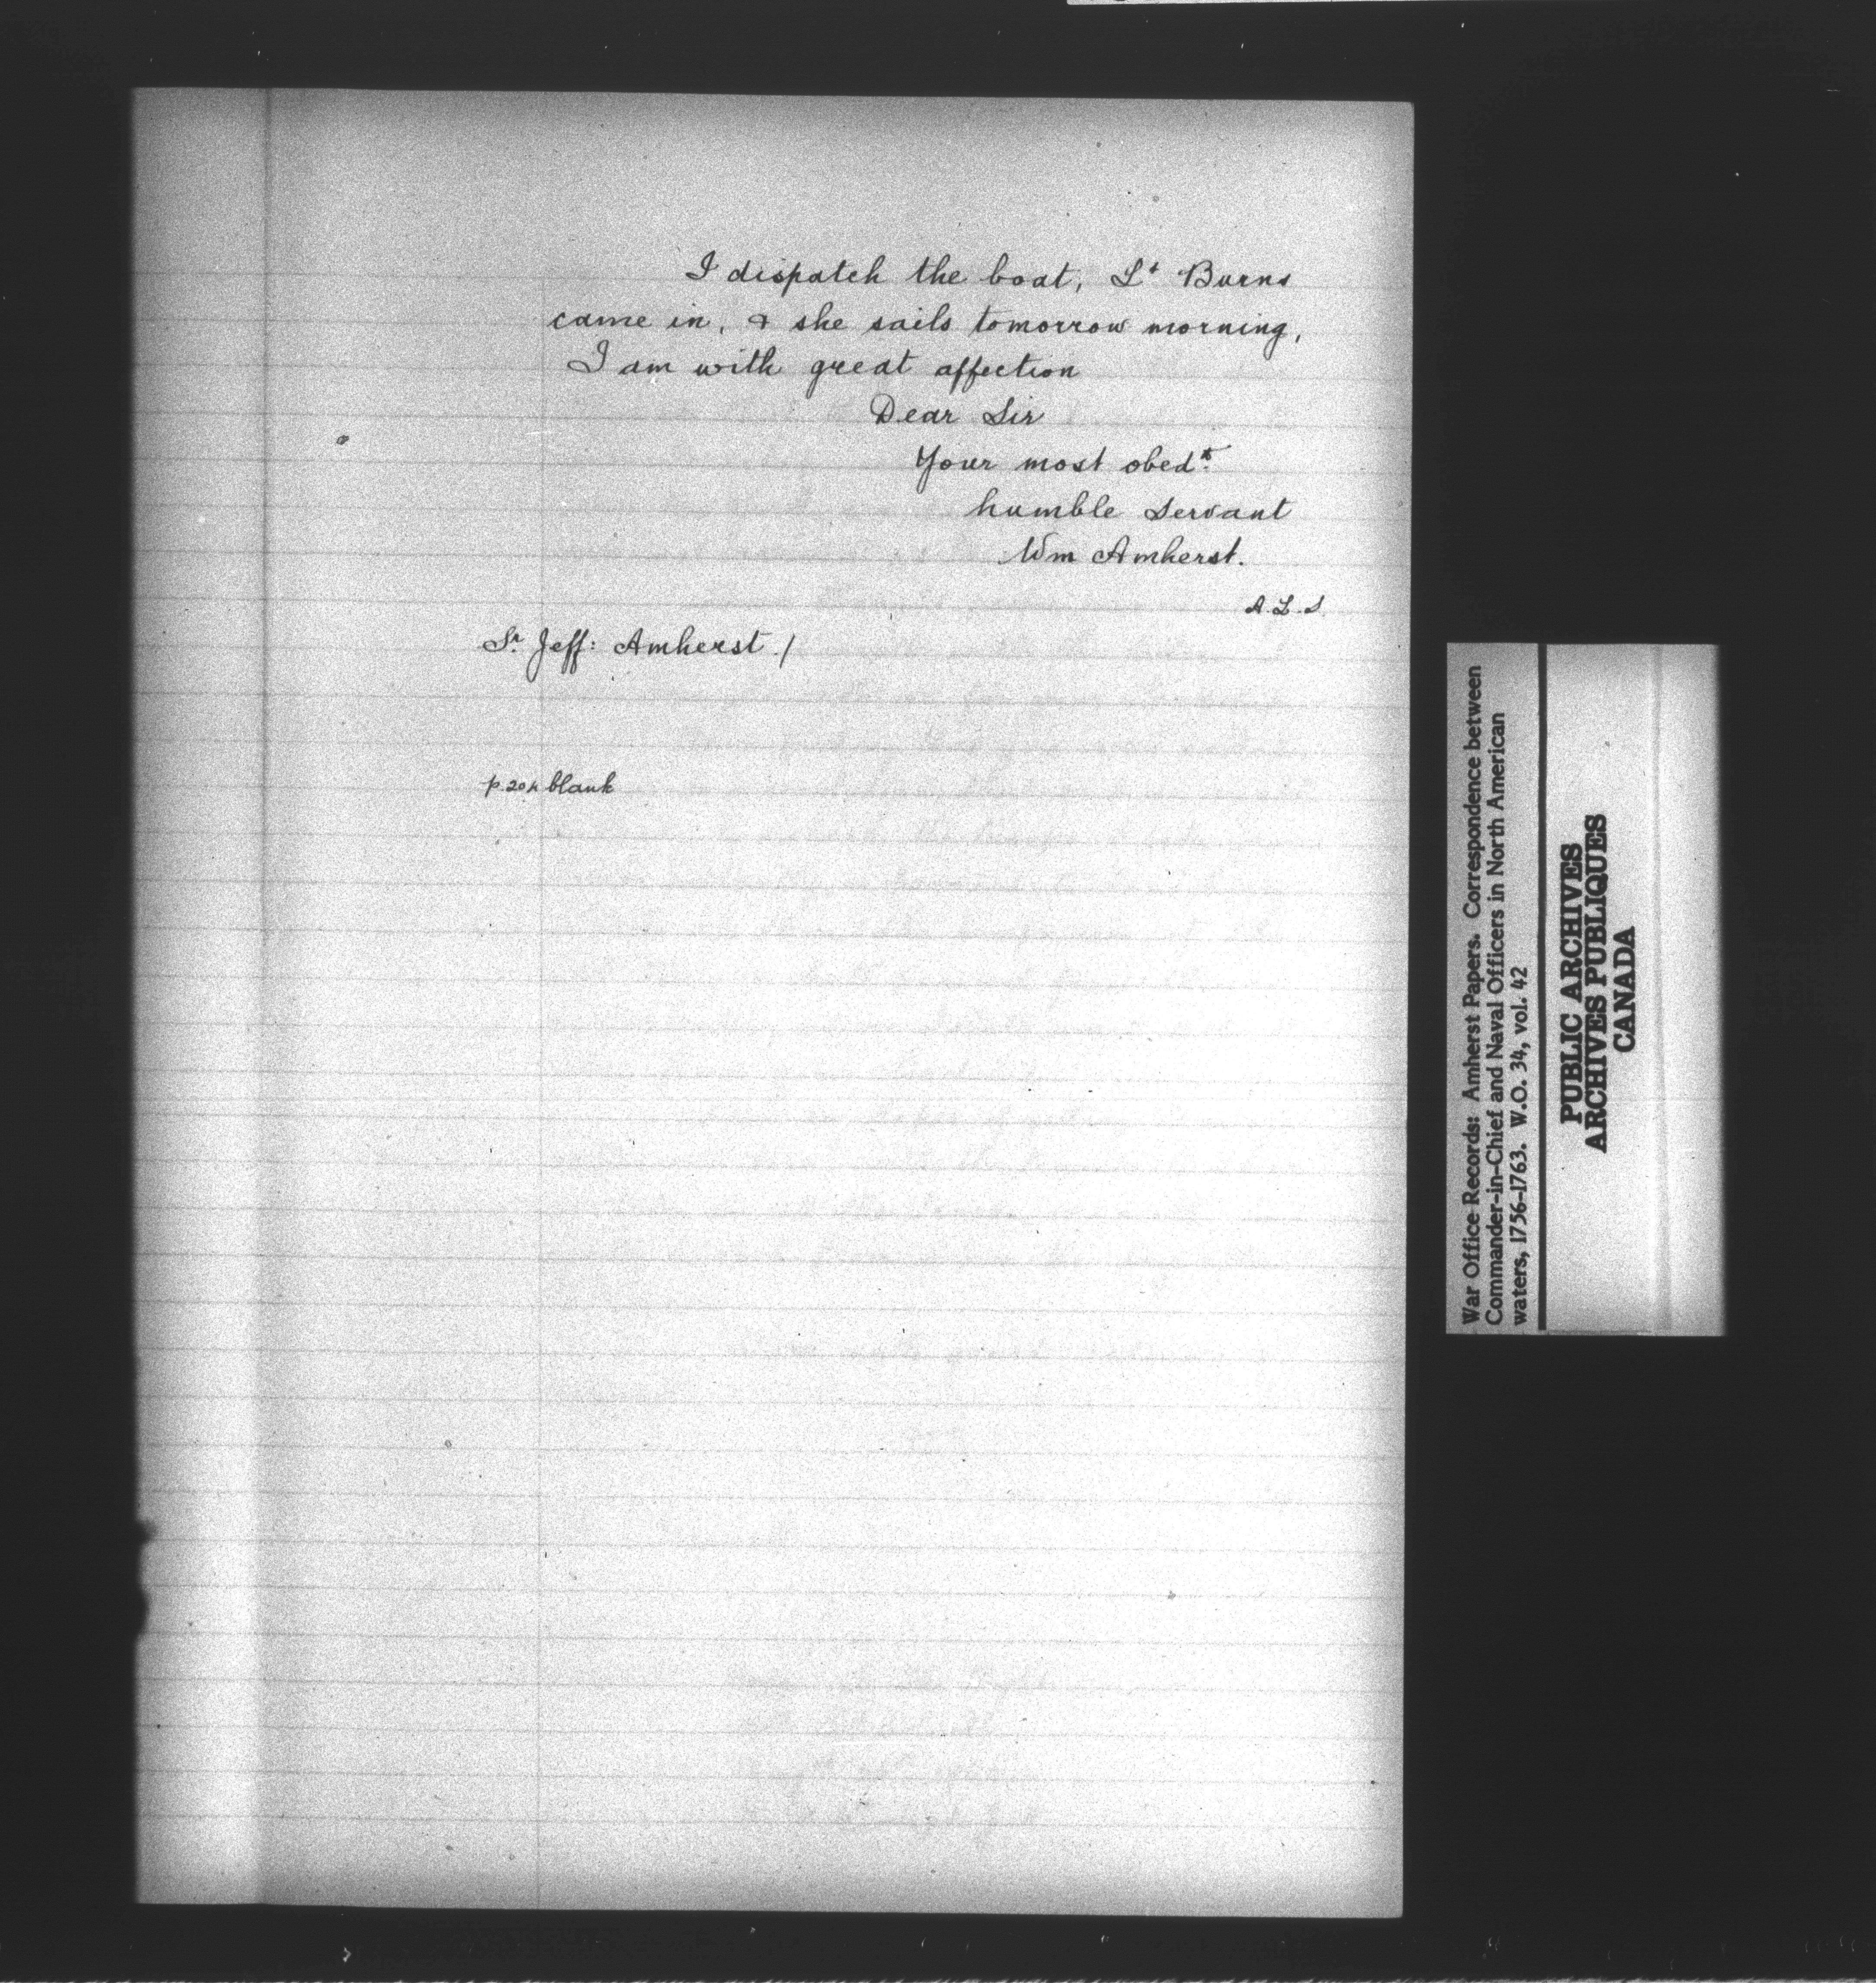 I dispatch the boat, Lt Burns
came in, & she sails tomorrow morning,
I am with great affection
Dear Sir
Your most obedt.
humble Servant
Wm Amherst.
A.L.S.
Sr. Jeff: Amherst./
blank
War Office Records: Amherst Papers. Correspondence between
Commander-in-Chief and Naval Officers in North American
waters, 1756-1763. W.O. 34, vol. 42
PUBLIC ARCHIVES
ARCHIVES PUBLIQUES
CANADA